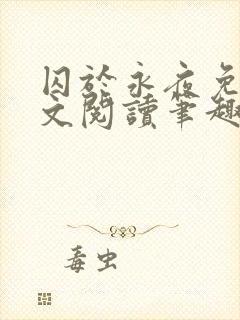 囚於永夜免
文閱讀筆趣
毒虫